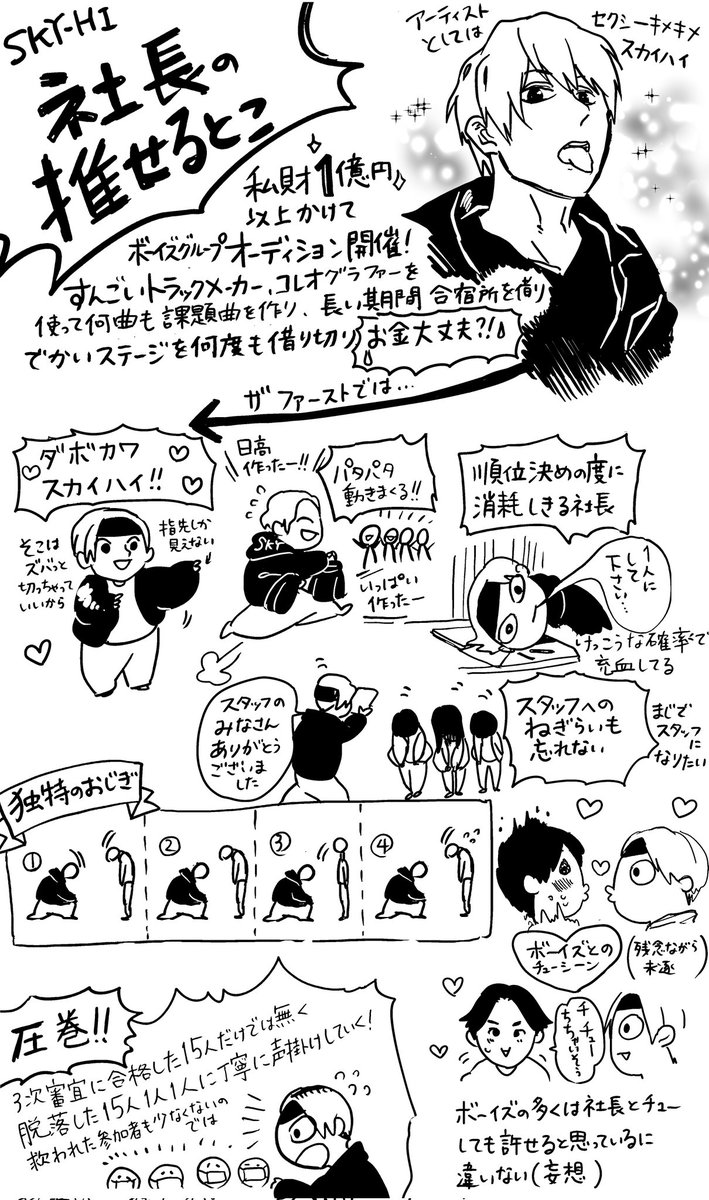 SKY-HI
社長の
推せるとこ
アーティスト
としては
セクシーキメキメ
スカイハイ
私財1億円
以上かけて
ボーイズグループオーディション開催!
すんごいトラックメーカー、コレオグラファーを
使って何曲も課題曲を作り、長い期間合宿所を借り
でかいステージを何度も借り切り
お金大丈夫?!
ザ ファーストでは…
ダボカワ
スカイハイ!!
そこは
ズバっと
切っちゃって
いいから
指先しか
見えない
日高
作ったー!!
パタパタ
動きまくる!!
SKY
いっぱい
作ったー
順位決めの度に
消耗しきる社長
1人に
して
下さい…
けっこうな確率で
充血してる
スタッフの
みなさん
ありがとう
ございま
した
スタッフへの
ねぎらいも
忘れない
まじで
スタッフ
に
なりたい
独特のおじぎ
①
②
③
④
ボーイズとの
チューシーン
(残念ながら
未遂)
チ チュー
しちゃいそう
ボーイズの多くは社長とチュー
しても許せると思っているに
違いない(妄想)
圧巻!!
3次審査に合格した15人だけでは無く
脱落した15人1人1人に丁寧に声掛けしていく!
救われた参加者も少なくないの
では